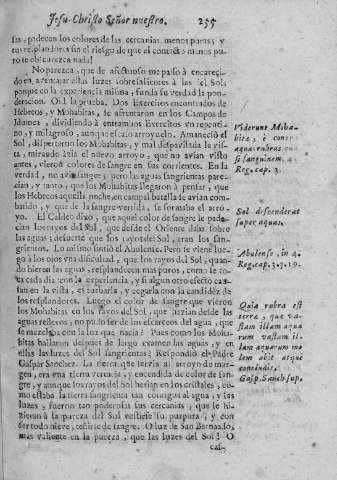 Jesu-Christo Señor nuestro. 255
sas, padecen los colores de las cercanias menos puras; y
sin el riesgo de que el contacto menos pu-
ro te obscurezca nada!
No parezca, que de afectuoso me passo à encareci-
do, aventajar estas luzes sobresalientes à las del Sol,
porque en la experiencia misma, funda su verdad la pon-
deracion. Oid la prueba. Dos Exercitos encontrados de
Hebreos, y Mohabitas, se afrontaron en los Campos de
Idumea, dividiendo à entrambos Exercitos un repenti-
no, y milagroso, aunque escaso arroyuelo. Amaneciò el
Sol, dispertaron los Mohabitas, y mal despavilada la vis-
ta, mirando àzia el nuevo arroyo, que no avian visto
antes, vieron colores de sangre en sus corrientes. En la
verdad, no avia sangre; pero las aguas sangrientas pare-
cian, y tanto, que los Mohabitas llegaron à pensar, que
los Hebreos aquella noche en campal batalla se avian com-
batido, y que de la sangre vertida, se formaba el arro-
yo. El Caldeo dixo, que aquel color de sangre le pade-
cian los rayos del Sol, que desde el Oriente daba sobre
las aguas; de suerte que los rayos del Sol, eran los san-
grientos. Lo mismo sintiò el Abulense. Pero se viene lue-
go à los ojos una dificultad, que los rayos del Sol, quan-
do hieran las aguas, resplandecen mas puros, como se to-
ca cada dia con la experiencia, y si algun otro efecto cau-
san en la vista, es turbarla, y cegarla con la candidèz de
los resplandores. Luego el color de sangre que vieron
los Mohabitas en los rayos del Sol, que hazian desde las
aguas reflexos, no pudo ser de las cercanias del agua, que
se mezclaba con la luz que nacia? Pues como los Moha-
bitas hallaron despues de largo examen las aguas, y en
ellas las luzes del Sol sangrientas? Respondiò el Padre
Gaspar Sanchez. La tierra que servia al arroyo de mar-
gen, era una tierra vermeja, y encendida de color de san-
gre, y aunque los rayos del Sol herian en los cristales, co-
mo estaba la tierra sangrienta tan contigua al agua, y las
luzes, fueron tan poderosas sus cercanias, que le hi-
zieron à la pureza del Sol vestirse su purpura, y con
ser todo nieve, teñirse de sangre. O luz de San Bernardo,
mas valiente en la pureza, que las luzes del Sol! O
cas-
Viderunt Moha-
bitæ, è contra
aquas rubras qua-
si sanguinem. 4.
Reg. cap. 3.
Sol descenderat
super aquas.
Abulense, in 4.
Reg. cap. 3. q. 19.
Quia rubra est
terra, que va-
stam illam aqua
rum vastam il-
lam aquarum mo
lem abit atque
concludit.
Gasp. Sanch sup.